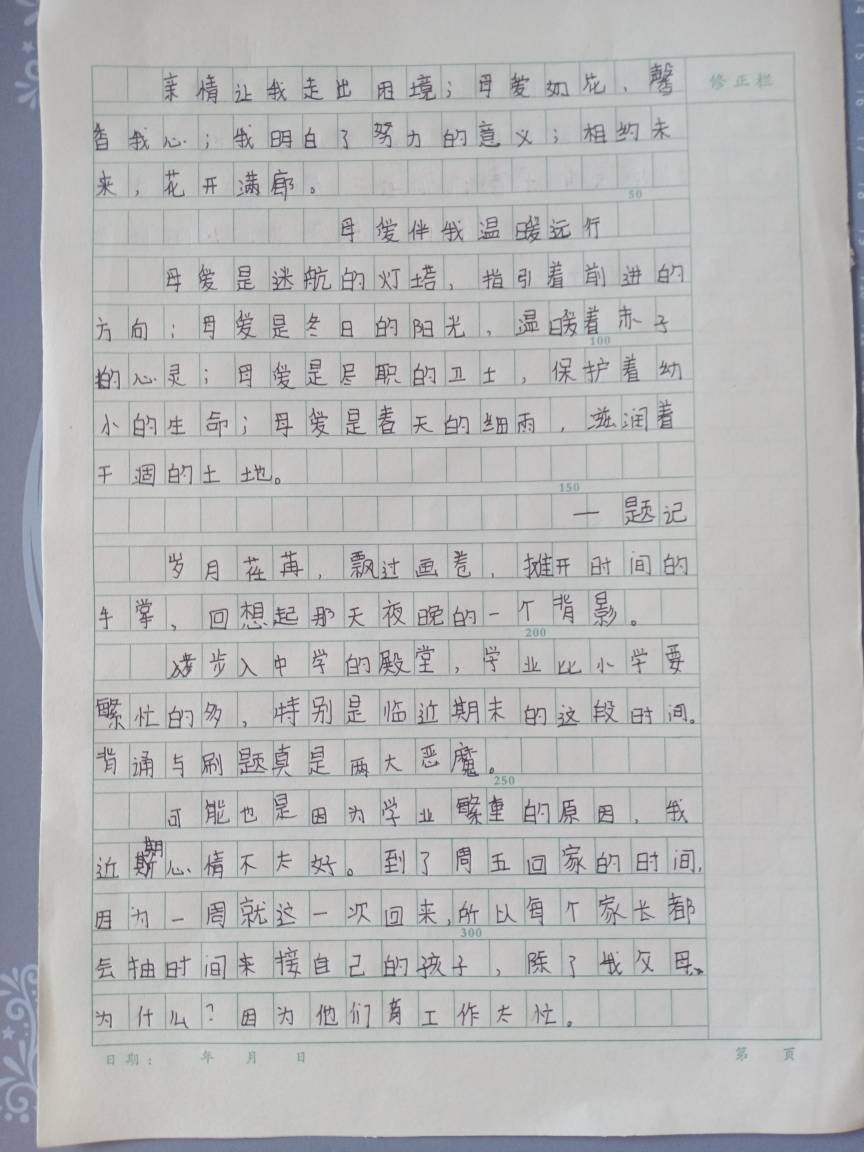 亲情让我走出困境；母爱如花，馨
香我心；我明白了努力的意义；相约未
来，花开满廊。
母爱伴我温暖远行
母爱是迷航的灯塔，指引着前进的
方向；母爱是冬日的阳光，温暖着赤子
的心灵；母爱是尽职的卫士，保护着幼
小的生命；母爱是春天的细雨，滋润着
干涸的土地。
—题记
岁月荏苒，飘过画卷，摊开时间的
手掌，回想起那天夜晚的一个背影。
步入中学的殿堂，学业比小学要
繁忙的多，特别是临近期末的这段时间。
背诵与刷题真是两大恶魔。
可能也是因为学业繁重的原因，我
近期心情不太好。到了周五回家的时间，
因为一周就这一次回来，所以每个家长都
会抽时间来接自己的孩子，除了我父母。
为什么？因为他们有工作太忙。
修正栏
50
100
150
200
250
300
日期： 年 月 日
第 页